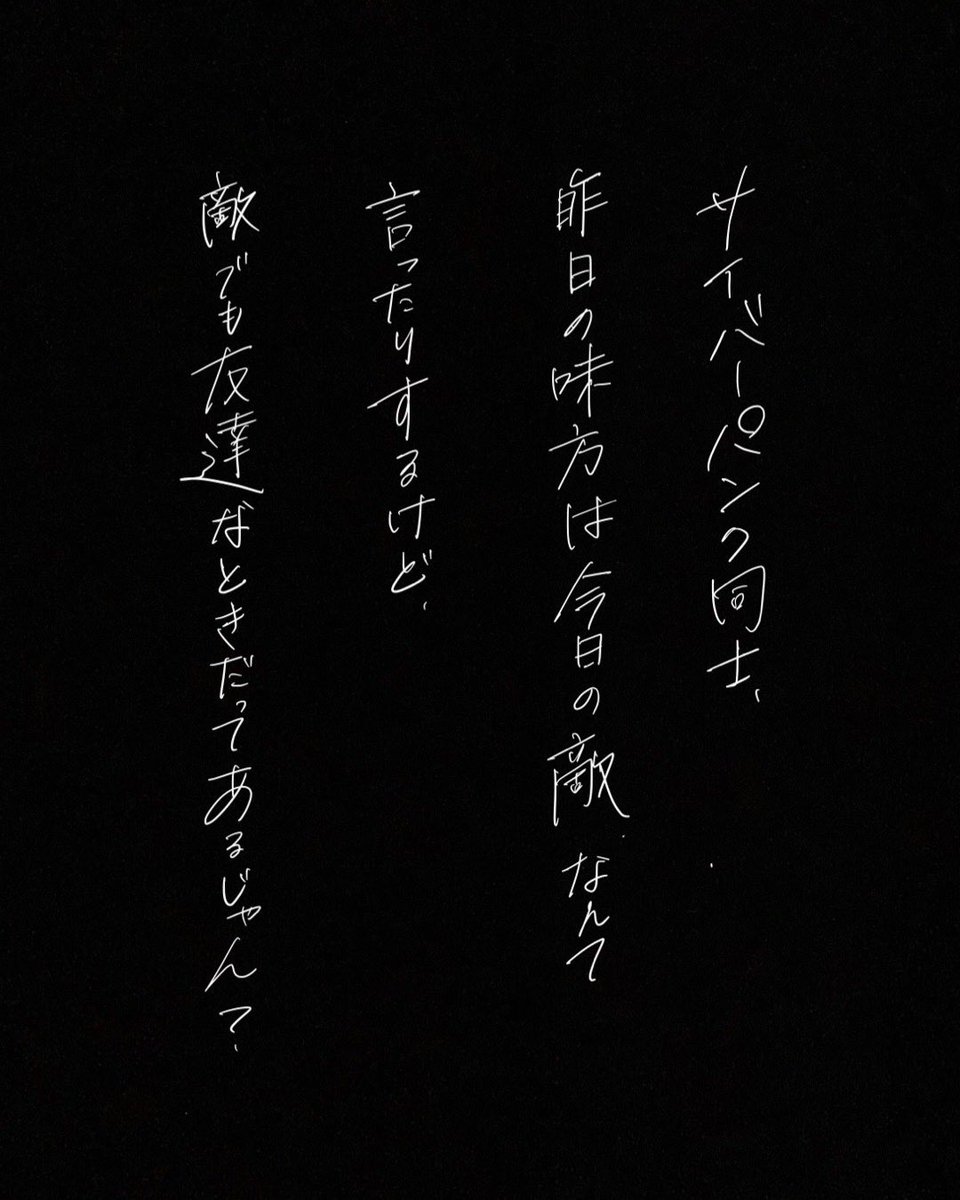 サイバーパンク同士、
昨日の味方は今日の敵、なんて
言ったりするけど、
敵でも友達なときだってあるじゃん？